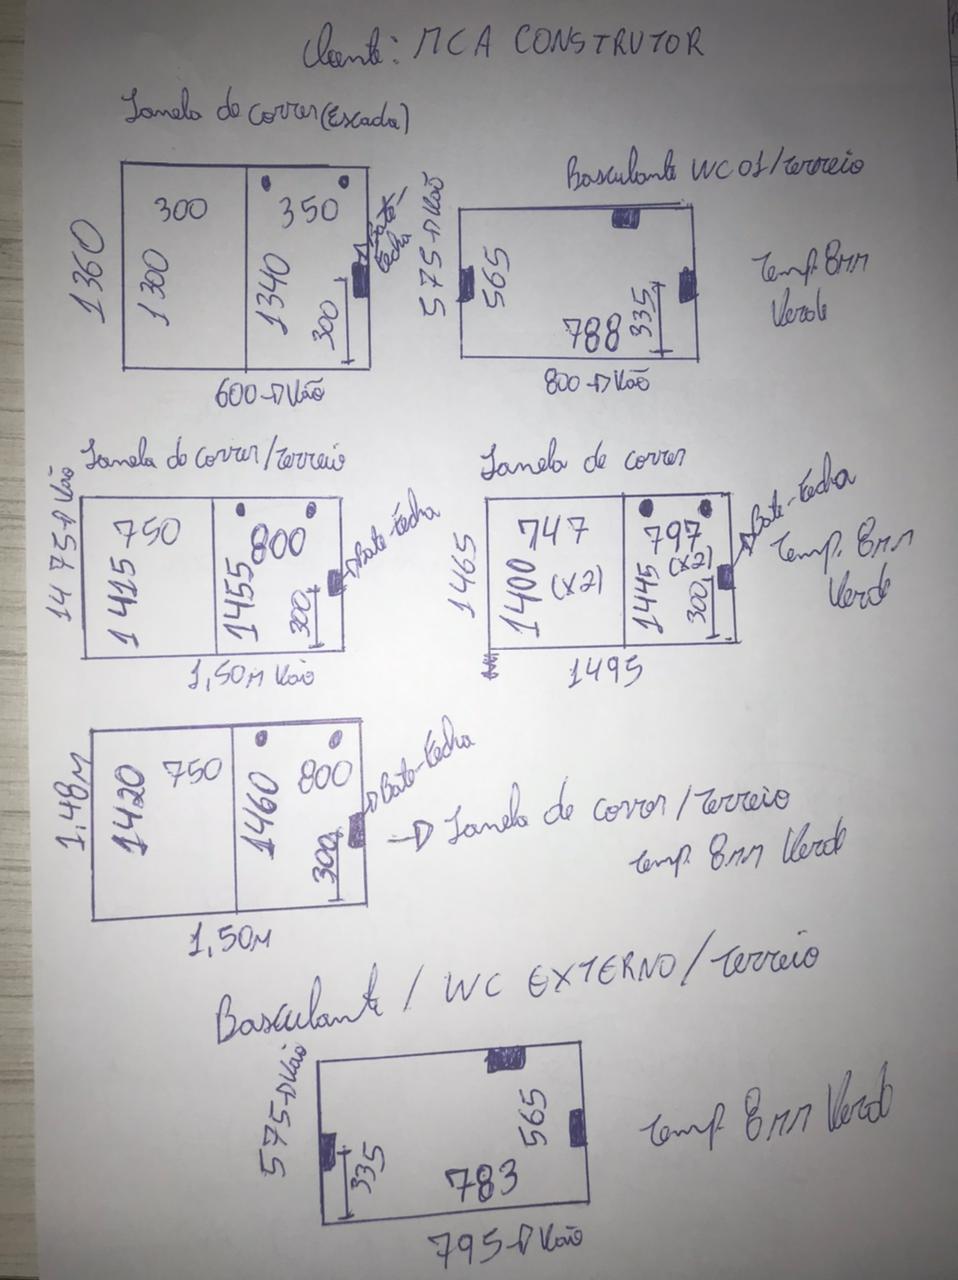 Cliente: MCA CONSTRUTOR
Janela de correr (Escada)
1360
300
1300
350
1340
300
Bate-fecha
600→Vão
Basculante WC 01/Terreio
575→Vão
565
788
335
800→Vão
Temp. 8mm
Verde
Janela de correr/Terreio
1475→Vão
750
1415
800
1455
300
Bate-fecha
1,50m Vão
Janela de correr
1465
747
1400
(x2)
797
(x2)
1445
300
Bate-fecha
1495
Temp. 8mm
Verde
1.48m
750
1420
800
1460
300
Bate-fecha
1,50m
→ Janela de correr/Terreio
Temp. 8mm Verde
Basculante / WC EXTERNO/Terreio
575→Vão
335
565
783
795→Vão
Temp 8mm Verde